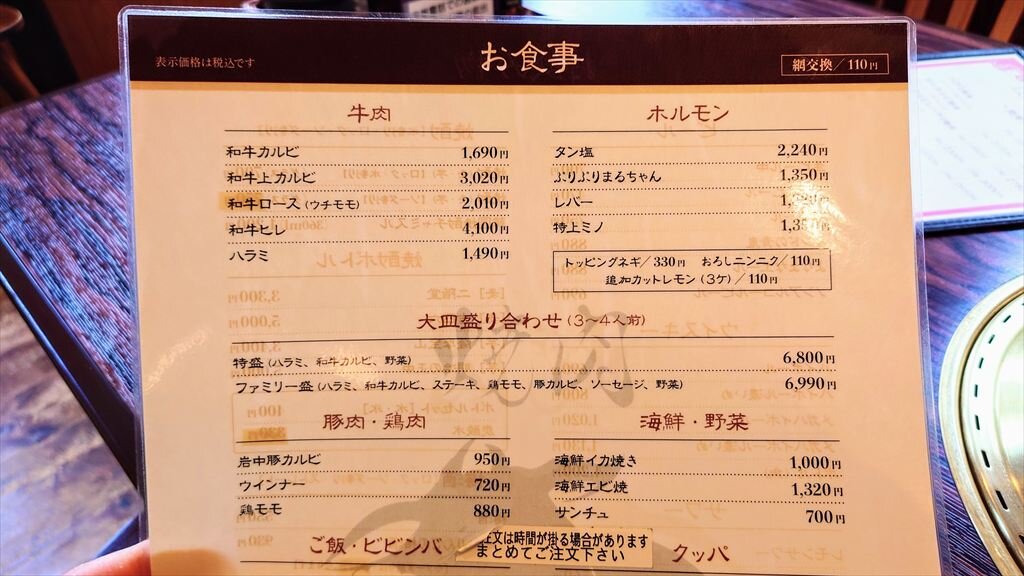 表示価格は税込です
お食事
網交換／110円
牛肉
和牛カルビ 1,690円
和牛上カルビ 3,020円
和牛ロース（ウチモモ） 2,010円
和牛ヒレ 4,100円
ハラミ 1,490円
ホルモン
タン塩 2,240円
ぷりぷりまるちゃん 1,350円
レバー
特上ミノ
トッピングネギ／330円 おろしニンニク／110円
追加カットレモン（3ケ）／110円
大皿盛り合わせ（3〜4人前）
特盛（ハラミ、和牛カルビ、野菜） 6,800円
ファミリー盛（ハラミ、和牛カルビ、ステーキ、鶏モモ、豚カルビ、ソーセージ、野菜） 6,990円
豚肉・鶏肉
岩中豚カルビ 950円
ウインナー 720円
鶏モモ 880円
海鮮・野菜
海鮮イカ焼き 1,000円
海鮮エビ焼 1,320円
サンチュ 700円
ご飯・ビビンバ
注文は時間が掛る場合があります
まとめてご注文下さい
クッパ